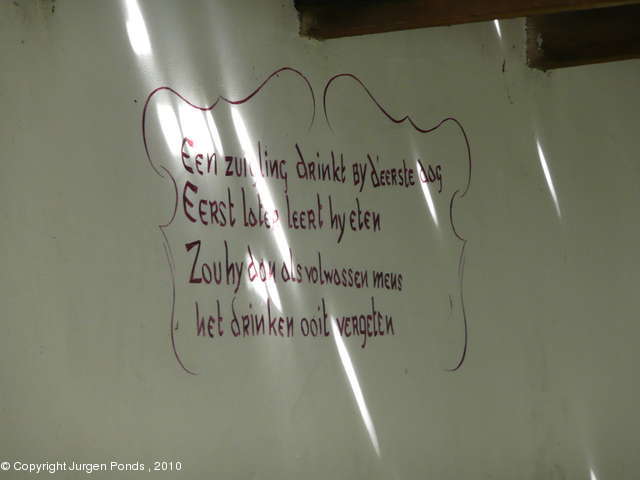 Een zuigling drinkt by d'eerste dag
Eerst later leert hy eten
Zou hy dan als volwassen mens
het drinken ooit vergeten
© Copyright Jurgen Ponds , 2010